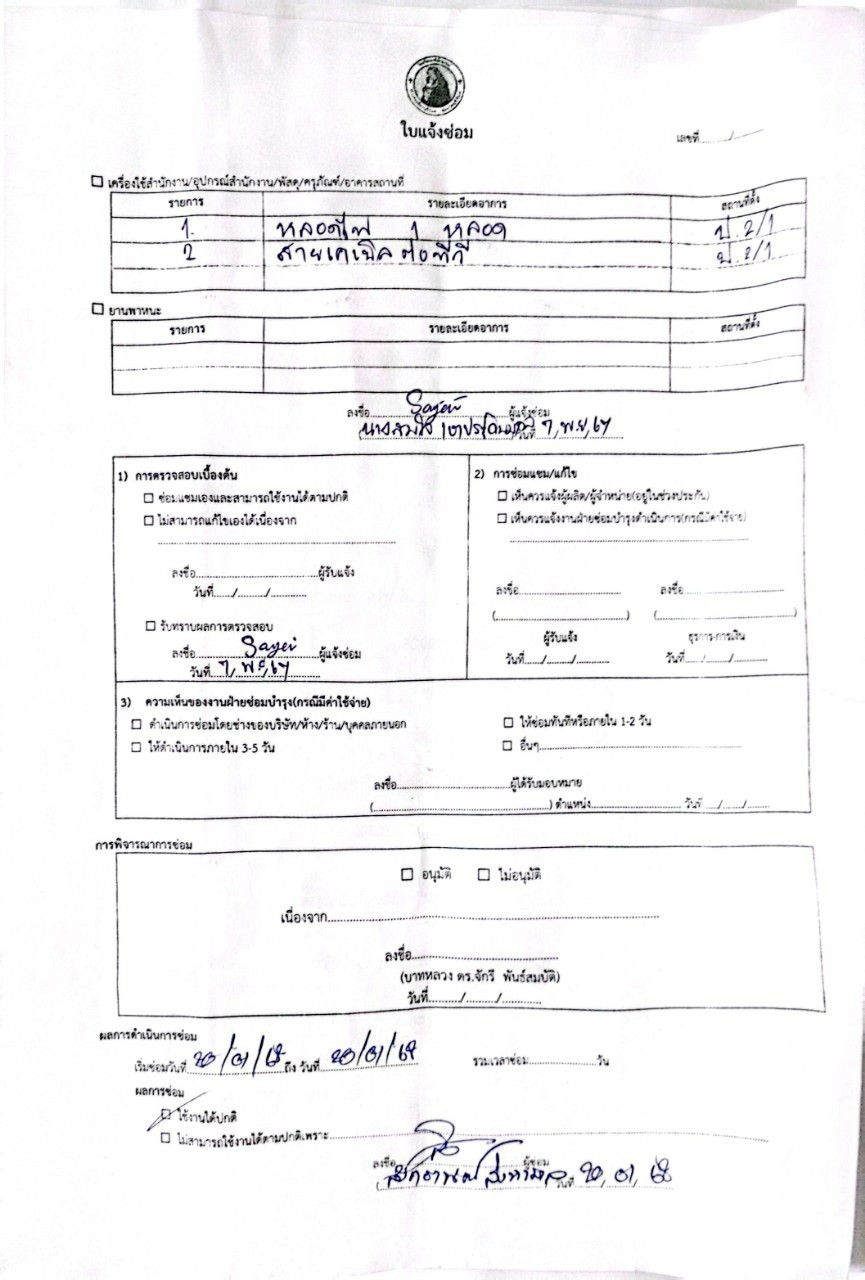 ใบแจ้งซ่อม
เลขที่......../........
☐ เครื่องใช้สำนักงาน/อุปกรณ์สำนักงาน/พัสดุ/ครุภัณฑ์/อาคารสถานที่
รายการ รายละเอียดอาการ สถานที่ตั้ง
1. หลอดไฟ 1 หลอด ป.2/1
2 สายเคเบิลต่อทีวี ป.2/1
☐ ยานพาหนะ
รายการ รายละเอียดอาการ สถานที่ตั้ง
ลงชื่อ ผู้แจ้งซ่อม
วันที่ 7, พ.ย, 67
1) การตรวจสอบเบื้องต้น
☐ ซ่อมแซมเองและสามารถใช้งานได้ตามปกติ
☐ ไม่สามารถแก้ไขเองได้เนื่องจาก
ลงชื่อ........ผู้รับแจ้ง
วันที่....../....../......
☐ รับทราบผลการตรวจสอบ
ลงชื่อ ผู้แจ้งซ่อม
วันที่ 7, พ.ย, 67
2) การซ่อมแซม/แก้ไข
☐ เห็นควรแจ้งผู้ผลิต/ผู้จำหน่าย(อยู่ในช่วงประกัน)
☐ เห็นควรแจ้งงานฝ่ายซ่อมบำรุงดำเนินการ(กรณีมีค่าใช้จ่าย)
ลงชื่อ........ ลงชื่อ........
(........) (........)
ผู้รับแจ้ง ธุรการ-การเงิน
วันที่....../....../...... วันที่....../....../......
3) ความเห็นของงานฝ่ายซ่อมบำรุง(กรณีมีค่าใช้จ่าย)
☐ ดำเนินการซ่อมโดยช่างของบริษัท/ห้าง/ร้าน/บุคคลภายนอก ☐ ให้ซ่อมทันทีหรือภายใน 1-2 วัน
☐ ให้ดำเนินการภายใน 3-5 วัน ☐ อื่นๆ........
ลงชื่อ........ผู้ได้รับมอบหมาย
(........) ตำแหน่ง........ วันที่....../....../......
การพิจารณาการซ่อม
☐ อนุมัติ ☐ ไม่อนุมัติ
เนื่องจาก........
ลงชื่อ........
(บาทหลวง ดร.จักรี พันธ์สมบัติ)
วันที่......../......../........
ผลการดำเนินการซ่อม
เริ่มซ่อมวันที่ 20/01/68 ถึง วันที่ 20/01/68 รวมเวลาซ่อม........วัน
ผลการซ่อม
☐ ใช้งานได้ปกติ
☐ ไม่สามารถใช้งานได้ตามปกติเพราะ........
ลงชื่อ ผู้ซ่อม
วันที่ 20, 01, 68